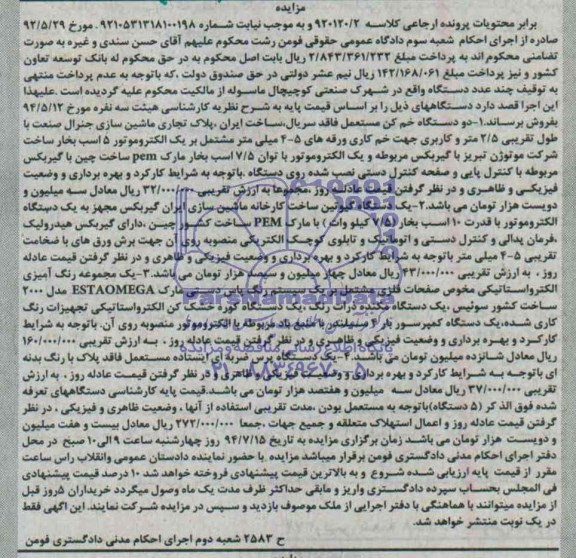 مزایده
برابر محتویات پرونده ارجاعی کلاسه ۹۲۰۱۲۰/۲ و به موجب نیابت شماره ۹۲۱۰۵۳۱۳۱۸۱۰۰۱۹۸ . مورخ ۹۲/۵/۲۹
صادره از اجرای احکام شعبه سوم دادگاه عمومی حقوقی فومن رشت محکوم علیهم آقای حسن سندی و غیره به صورت
تضامنی محکوم اند به پرداخت مبلغ ۲/۸۴۳/۳۶۱/۲۳۲ ریال بابت اصل محکوم به در حق محکوم له بانک توسعه تعاون
کشور و نیز پرداخت مبلغ ۱۴۲/۱۶۸/۰۶۱ ریال نیم عشر دولتی در حق صندوق دولت ،که باتوجه به عدم پرداخت منتهی
به توقیف چند عدد دستگاه واقع در شهرک صنعتی کوچیچال ماسوله از مالکیت محکوم علیه گردیده است .علیهذا
این اجرا قصد دارد دستگاههای ذیل را بر اساس قیمت پایه به شرح نظریه کارشناسی هیئت سه نفره مورخ ۹۴/۵/۱۲
بفروش برساند.۱-دو دستگاه خم کن مستعمل فاقد سریال،ساخت ایران ،پلاک تجاری ماشین سازی جنرال صنعت با
طول تقریبی ۲/۵ متر و کاربری جهت خم کاری ورقه های ۵-۴ میلی متر مشتمل بر یک الکتروموتور ۵ اسب بخار ساخت
شرکت موتوژن تبریز با گیربکس مربوطه و یک الکتروموتور با توان ۷/۵ اسب بخار مارک pem ساخت چین با گیربکس
مربوطه با کنترل پایی و صفحه کنترل دستی نصب شده روی دستگاه .باتوجه به شرایط کارکرد و بهره برداری و وضعیت
فیزیکی و ظاهری و در نظر گرفتن قیمت عادله روز ، مجموعا به ارزش تقریبی ۳۲/۰۰۰/۰۰۰ ریال معادل سه میلیون و
دویست هزار تومان می باشد.۲-یک دستگاه گیوتین ساخت کارخانه ماشین سازی ایران گیربکس مجهز به یک دستگاه
الکتروموتور با قدرت ۱۰ اسب بخار (۷/۵ کیلو وات ) با مارک PEM ساخت کشور چین ،دارای گیربکس هیدرولیک
،فرمان پدالی و کنترل دستی و اتوماتیک و تابلوی کوچک الکتریکی منصوبه روی آن جهت برش ورق های با ضخامت
تقریبی ۵-۴ میلی متر باتوجه به شرایط کارکرد و بهره برداری و وضعیت فیزیکی و ظاهری و در نظر گرفتن قیمت عادله
روز ، به ارزش تقریبی ۴۳/۰۰۰/۰۰۰ ریال معادل چهار میلیون و سیصد هزار تومان می باشد.۳-یک مجموعه رنگ آمیزی
الکترواستاتیکی مخوص صفحات فلزی مشتمل بر یک سیستم رنگ پاش دستی مارک ESTAOMEGA مدل ۲۰۰۰
ساخت کشور سوئیس ،یک دستگاه مکنده ذرات رنگ ،یک دستگاه کوره خشک کن الکترواستاتیکی تجهیزات رنگ
کاری شده،یک دستگاه کمپرسور باد ۴ سیلندر با منبع باد مربوطه با الکتروموتور منصوبه روی آن. باتوجه به شرایط
کارکرد و بهره برداری و وضعیت فیزیکی و ظاهری و در نظر گرفتن قیمت عادله روز ، به ارزش تقریبی ۱۶۰/۰۰۰/۰۰۰
ریال معادل شانزده میلیون تومان می باشد.۴-یک دستگاه پرس ضربه ای ایستاده مستعمل فاقد پلاک با رنگ بدنه
ای باتوجه به شرایط کارکرد و بهره برداری و وضعیت فیزیکی و ظاهری و در نظر گرفتن قیمت عادله روز ، به ارزش
تقریبی ۳۷/۰۰۰/۰۰۰ ریال معادل سه میلیون و هفتصد هزار تومان می باشد.قیمت پایه کارشناسی دستگاههای تعرفه
شده فوق الذکر (۵ دستگاه)باتوجه به مستعمل بودن ،مدت تقریبی استفاده از آنها ، وضعیت ظاهری و فیزیکی ، در نظر
گرفتن قیمت عادله روز و اعمال استهلاک متعلقه و جمیع جهات ،جمعا ۲۷۲/۰۰۰/۰۰۰ ریال معادل بیست و هفت میلیون
و دویست هزار تومان می باشد زمان برگزاری مزایده به تاریخ ۹۴/۷/۱۵ روز چهارشنبه ساعت ۹ الی ۱۰ صبح در محل
دفتر اجرای احکام مدنی دادگستری فومن برقرار میباشد مزایده .با حضور نماینده دادستان عمومی وانقلاب راس ساعت
مقرر از قیمت پایه ارزیابی شده شروع و به بالاترین قیمت پیشنهادی فروخته خواهد شد ۱۰ درصد قیمت پیشنهادی
فی المجلس بحساب سپرده دادگستری واریز و مابقی حداکثر ظرف مدت یک ماه وصول میگردد خریداران ۵روز قبل
از مزایده میتوانند با هماهنگی با دفتر اجرایی از ملک موصوف بازدید و سپس در مزایده شرکت نمایند. این اگهی فقط
در یک نوبت منتشر خواهد شد.
ح ۲۵۸۳ شعبه دوم اجرای احکام مدنی دادگستری فومن
ParsNamadData
پایگاه اطلاع رسانی مناقصه و مزایده
۰۲۱-۸۸۳۴۹۶۷۰-۵